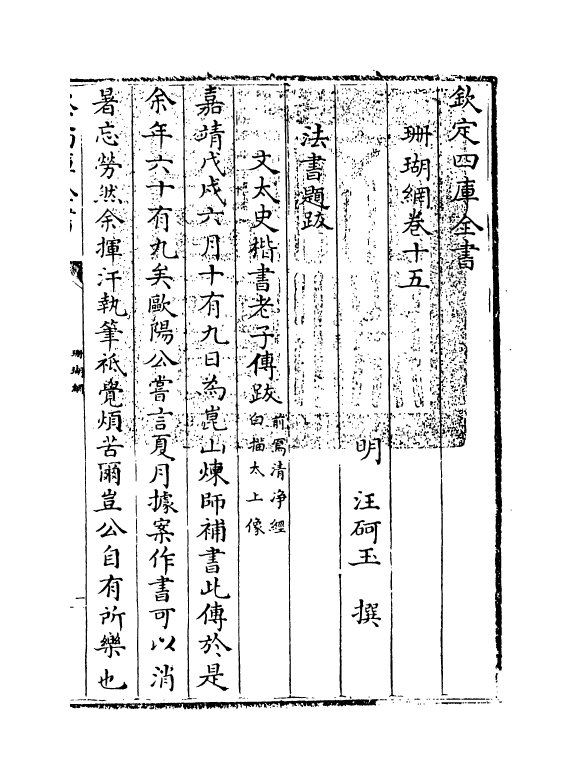 欽定四庫全書
珊瑚網卷十五
明 汪砢玉 撰
法書題跋
文太史楷書老子傳跋 前寫清淨經
白描太上像
嘉靖戊戌六月十有九日為崑山煉師補書此傳於是
余年六十有九矣歐陽公嘗言夏月據案作書可以消
暑忘勞然余揮汗執筆袛覺煩苦爾豈公自有所樂也
珊瑚網